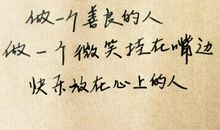 做一个善良的人
做一个微笑挂在嘴边
快乐放在心上的人